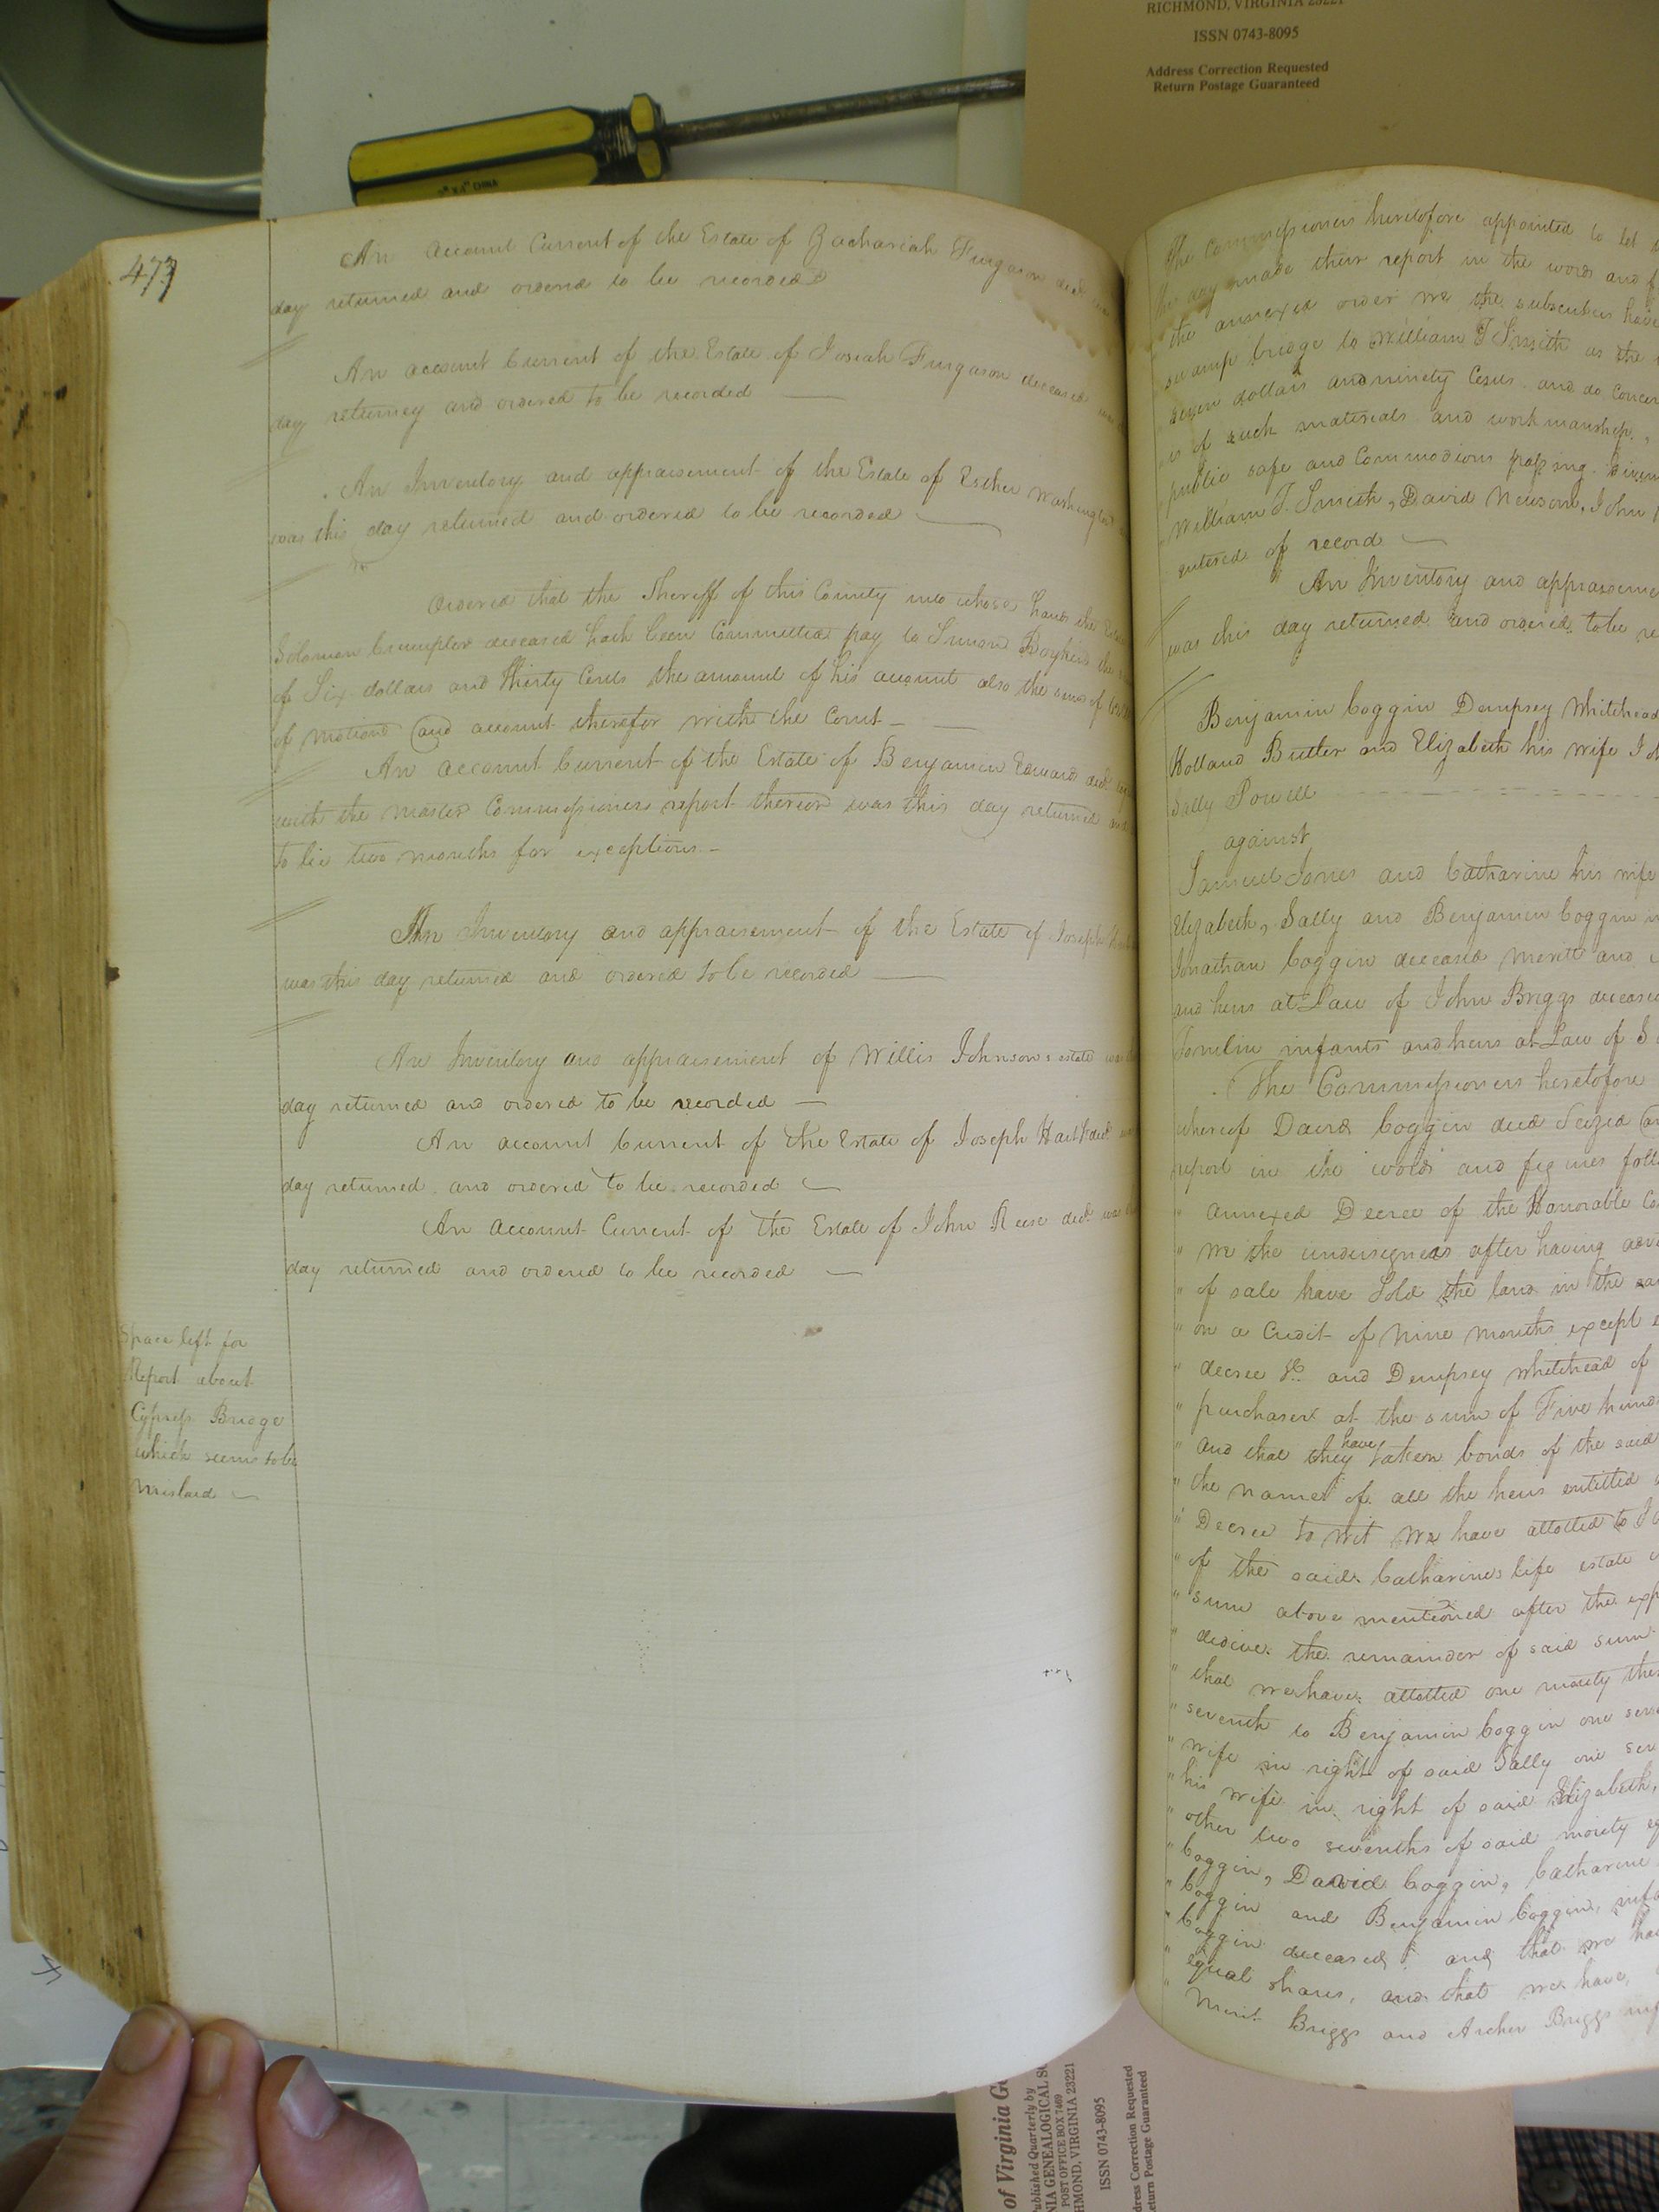 RICHMOND, VIRGINIA 23221
ISSN 0743-8095
Address Correction Requested
Return Postage Guaranteed
473
An account Current of the Estate of Zachariah Furgason decd
day returned and ordered to be recorded
An account Current of the Estate of Josiah Furgason deceased was
day returney and ordered to be recorded
An Inventory and appraisement of the Estate of Esther Washington
was this day returned and ordered to be recorded
Ordered that the Sheriff of this County into whose hands the Estate
Solomon Crumpler deceased hath been Committed pay to Simon Boykin the
of Six dollars and thirty Cents the amount of his account also the sum of
of motion and account therefor with the Court
An account Current of the Estate of Benjamin Edwards decd
with the master Commissioners report thereon was this day returned and
to lie two months for exceptions.
An Inventory and appraisement of the Estate of Joseph
was this day returned and ordered to be recorded
An Inventory and appraisement of Willis Johnsons estate was
day returned and ordered to be recorded
An account Current of the Estate of Joseph Hart decd
day returned and ordered to be recorded
An Account Current of the Estate of John Reese decd was
day returned and ordered to be recorded
Space left for
Report about
Cypress Bridge
which seems to be
mislaid
The Commissioners heretofore appointed to let
day made their report in the words and
the annexed order we the subscribers have
swamp bridge to William J Smith as the
seven dollars and ninety Cents and do
is of such materials and workmanship,
public safe and Commodious passing. Given
William J. Smith, David Newsom, John
entered of record
An Inventory and appraiseme
was this day returned and ordered to be re
Benjamin Coggin Dempsey Whitehead
Holland Butler and Elizabeth his wife
Sally Powell
against
Samuel Jones and Catharine his wife
Elizabeth, Sally and Benjamin Coggin
Jonathan Coggin deceased Meritt and
and heirs at Law of John Briggs decease
Tomlin infants and heirs at Law of
The Commissioners heretofore
whereof David Coggin died Seized
report in the words and figures foll
" annexed Decree of the Honorable
" we the undersigneds after having
" of sale have Sold the land in the
" on a Credit of nine months except
" decree &c and Dempsey Whitehead of
" purchaser at the sum of Five hund
" and that they have taken bonds of the said
" the names of all the heirs entitled
" Decree to wit we have allotted to
" of the said Catharines life estate
" sum above mentioned after the exp
" the remainder of said sum
" that we have allotted one moiety
" seventh to Benjamin Coggin one
" wife in right of said Sally one
" his wife in right of said Elizabeth,
" other two sevenths of said moiety
" Coggin, David Coggin, Catharine
" Coggin and Benjamin Coggin, inf
" Coggin deceased and that we ha
" equal shares, and that we have,
" Merit Briggs and Archer Briggs
of Virginia
Published Quarterly by
POST OFFICE BOX 7469
ISSN 0743-8095